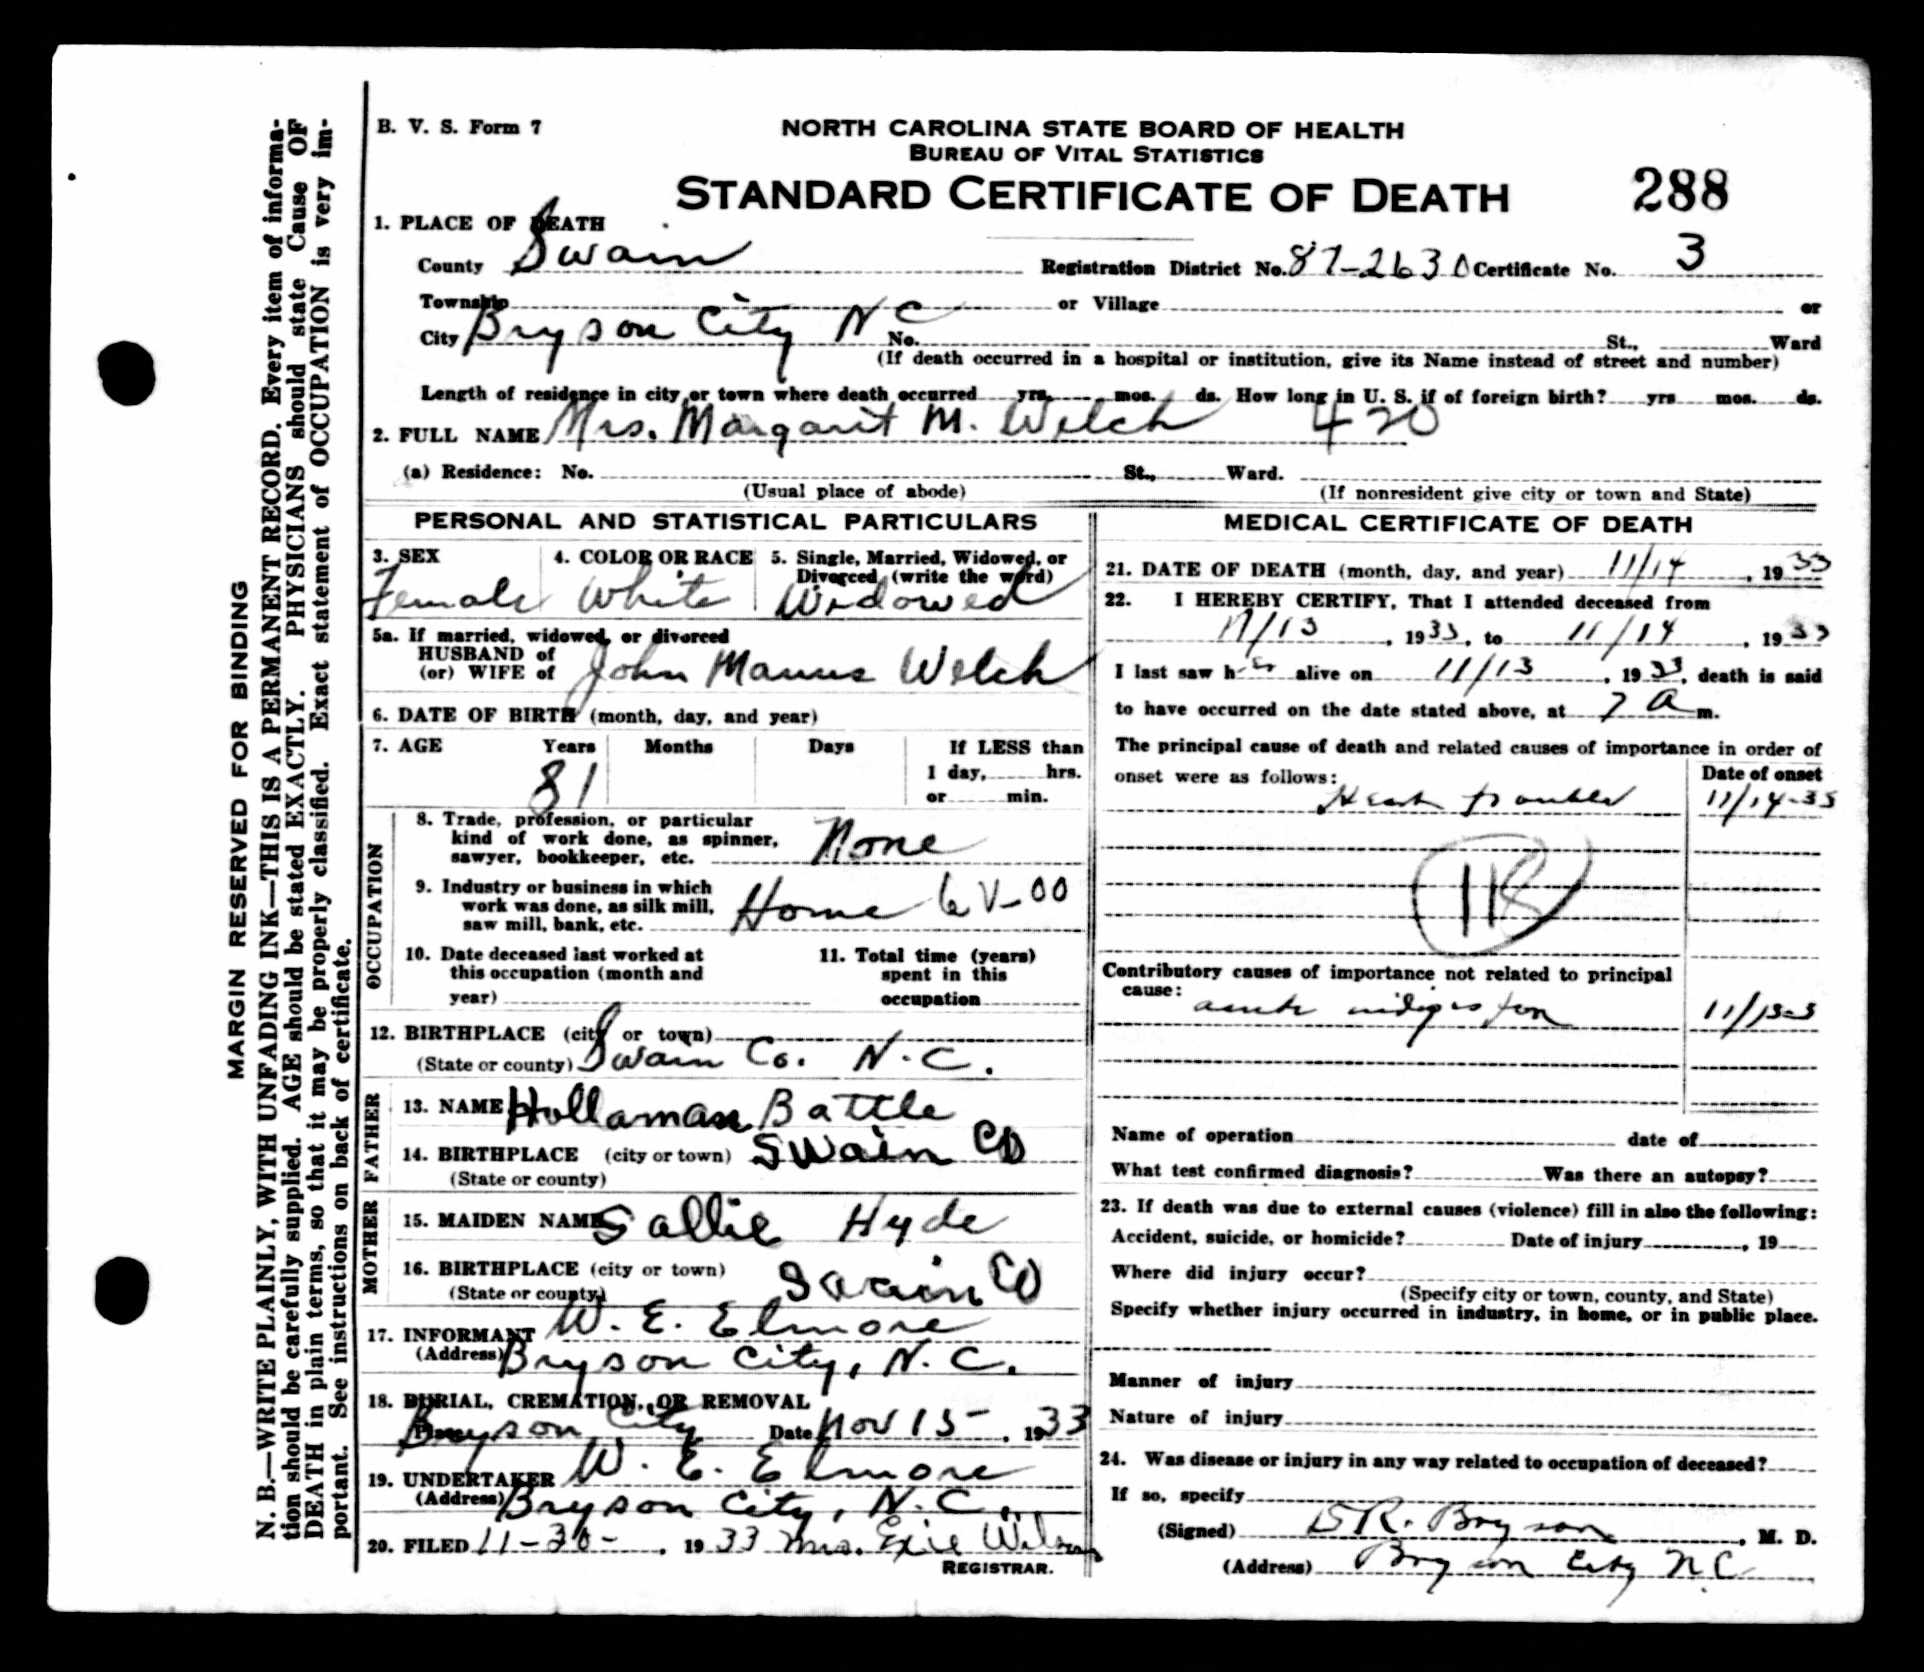 B. V. S. Form 7
NORTH CAROLINA STATE BOARD OF HEALTH
BUREAU OF VITAL STATISTICS
STANDARD CERTIFICATE OF DEATH
288
1. PLACE OF DEATH
County Swain Registration District No. 87-2630 Certificate No. 3
Township or Village or
City Bryson City N C No. St., Ward
(If death occurred in a hospital or institution, give its Name instead of street and number)
Length of residence in city or town where death occurred yrs. mos. ds. How long in U. S. if of foreign birth? yrs mos. ds.
2. FULL NAME Mrs. Margarit M. Welch 420
(a) Residence: No. St., Ward.
(Usual place of abode) (If nonresident give city or town and State)
PERSONAL AND STATISTICAL PARTICULARS
3. SEX 4. COLOR OR RACE 5. Single, Married, Widowed, or
Divorced (write the word)
Female White Widowed
5a. If married, widowed, or divorced
HUSBAND of
(or) WIFE of John Welch
6. DATE OF BIRTH (month, day, and year)
7. AGE Years Months Days If LESS than
1 day, hrs.
or min.
81
8. Trade, profession, or particular
kind of work done, as spinner,
sawyer, bookkeeper, etc. None
9. Industry or business in which
work was done, as silk mill,
saw mill, bank, etc. Home 6V-00
10. Date deceased last worked at
this occupation (month and
year)
11. Total time (years)
spent in this
occupation
12. BIRTHPLACE (city or town)
(State or county) Swain Co. N.C.
13. NAME Hollaman Battle
14. BIRTHPLACE (city or town) Swain CO
(State or county)
15. MAIDEN NAME Sallie Hyde
16. BIRTHPLACE (city or town)
(State or county) Swain CO
17. INFORMANT W. E. Elmore
(Address) Bryson City, N.C.
18. BURIAL, CREMATION, OR REMOVAL
Place Bryson City Date Nov 15 - , 1933
19. UNDERTAKER W. E. Elmore
(Address) Bryson City, N.C.
20. FILED 11-30- , 1933 Mrs. Exie Wilson
REGISTRAR.
OCCUPATION
FATHER
MOTHER
MEDICAL CERTIFICATE OF DEATH
21. DATE OF DEATH (month, day, and year) 11/14 , 1933
22. I HEREBY CERTIFY, That I attended deceased from
11/13 , 1933, to 11/14 , 1933
I last saw her alive on 11/13 , 1933, death is said
to have occurred on the date stated above, at 7 a m.
The principal cause of death and related causes of importance in order of
onset were as follows: Date of onset
Heart trouble 11/14-33
118
Contributory causes of importance not related to principal
cause:
acute indigestion 11/13-3
Name of operation date of
What test confirmed diagnosis? Was there an autopsy?
23. If death was due to external causes (violence) fill in also the following:
Accident, suicide, or homicide? Date of injury , 19
Where did injury occur?
(Specify city or town, county, and State)
Specify whether injury occurred in industry, in home, or in public place.
Manner of injury
Nature of injury
24. Was disease or injury in any way related to occupation of deceased?
If so, specify
(Signed) D R. Bryson , M. D.
(Address) Bryson City N.C
MARGIN RESERVED FOR BINDING
N. B.—WRITE PLAINLY, WITH UNFADING INK—THIS IS A PERMANENT RECORD. Every item of informa-
tion should be carefully supplied. AGE should be stated EXACTLY. PHYSICIANS should state Cause OF
DEATH in plain terms, so that it may be properly classified. Exact statement of OCCUPATION is very im-
portant. See instructions on back of certificate.